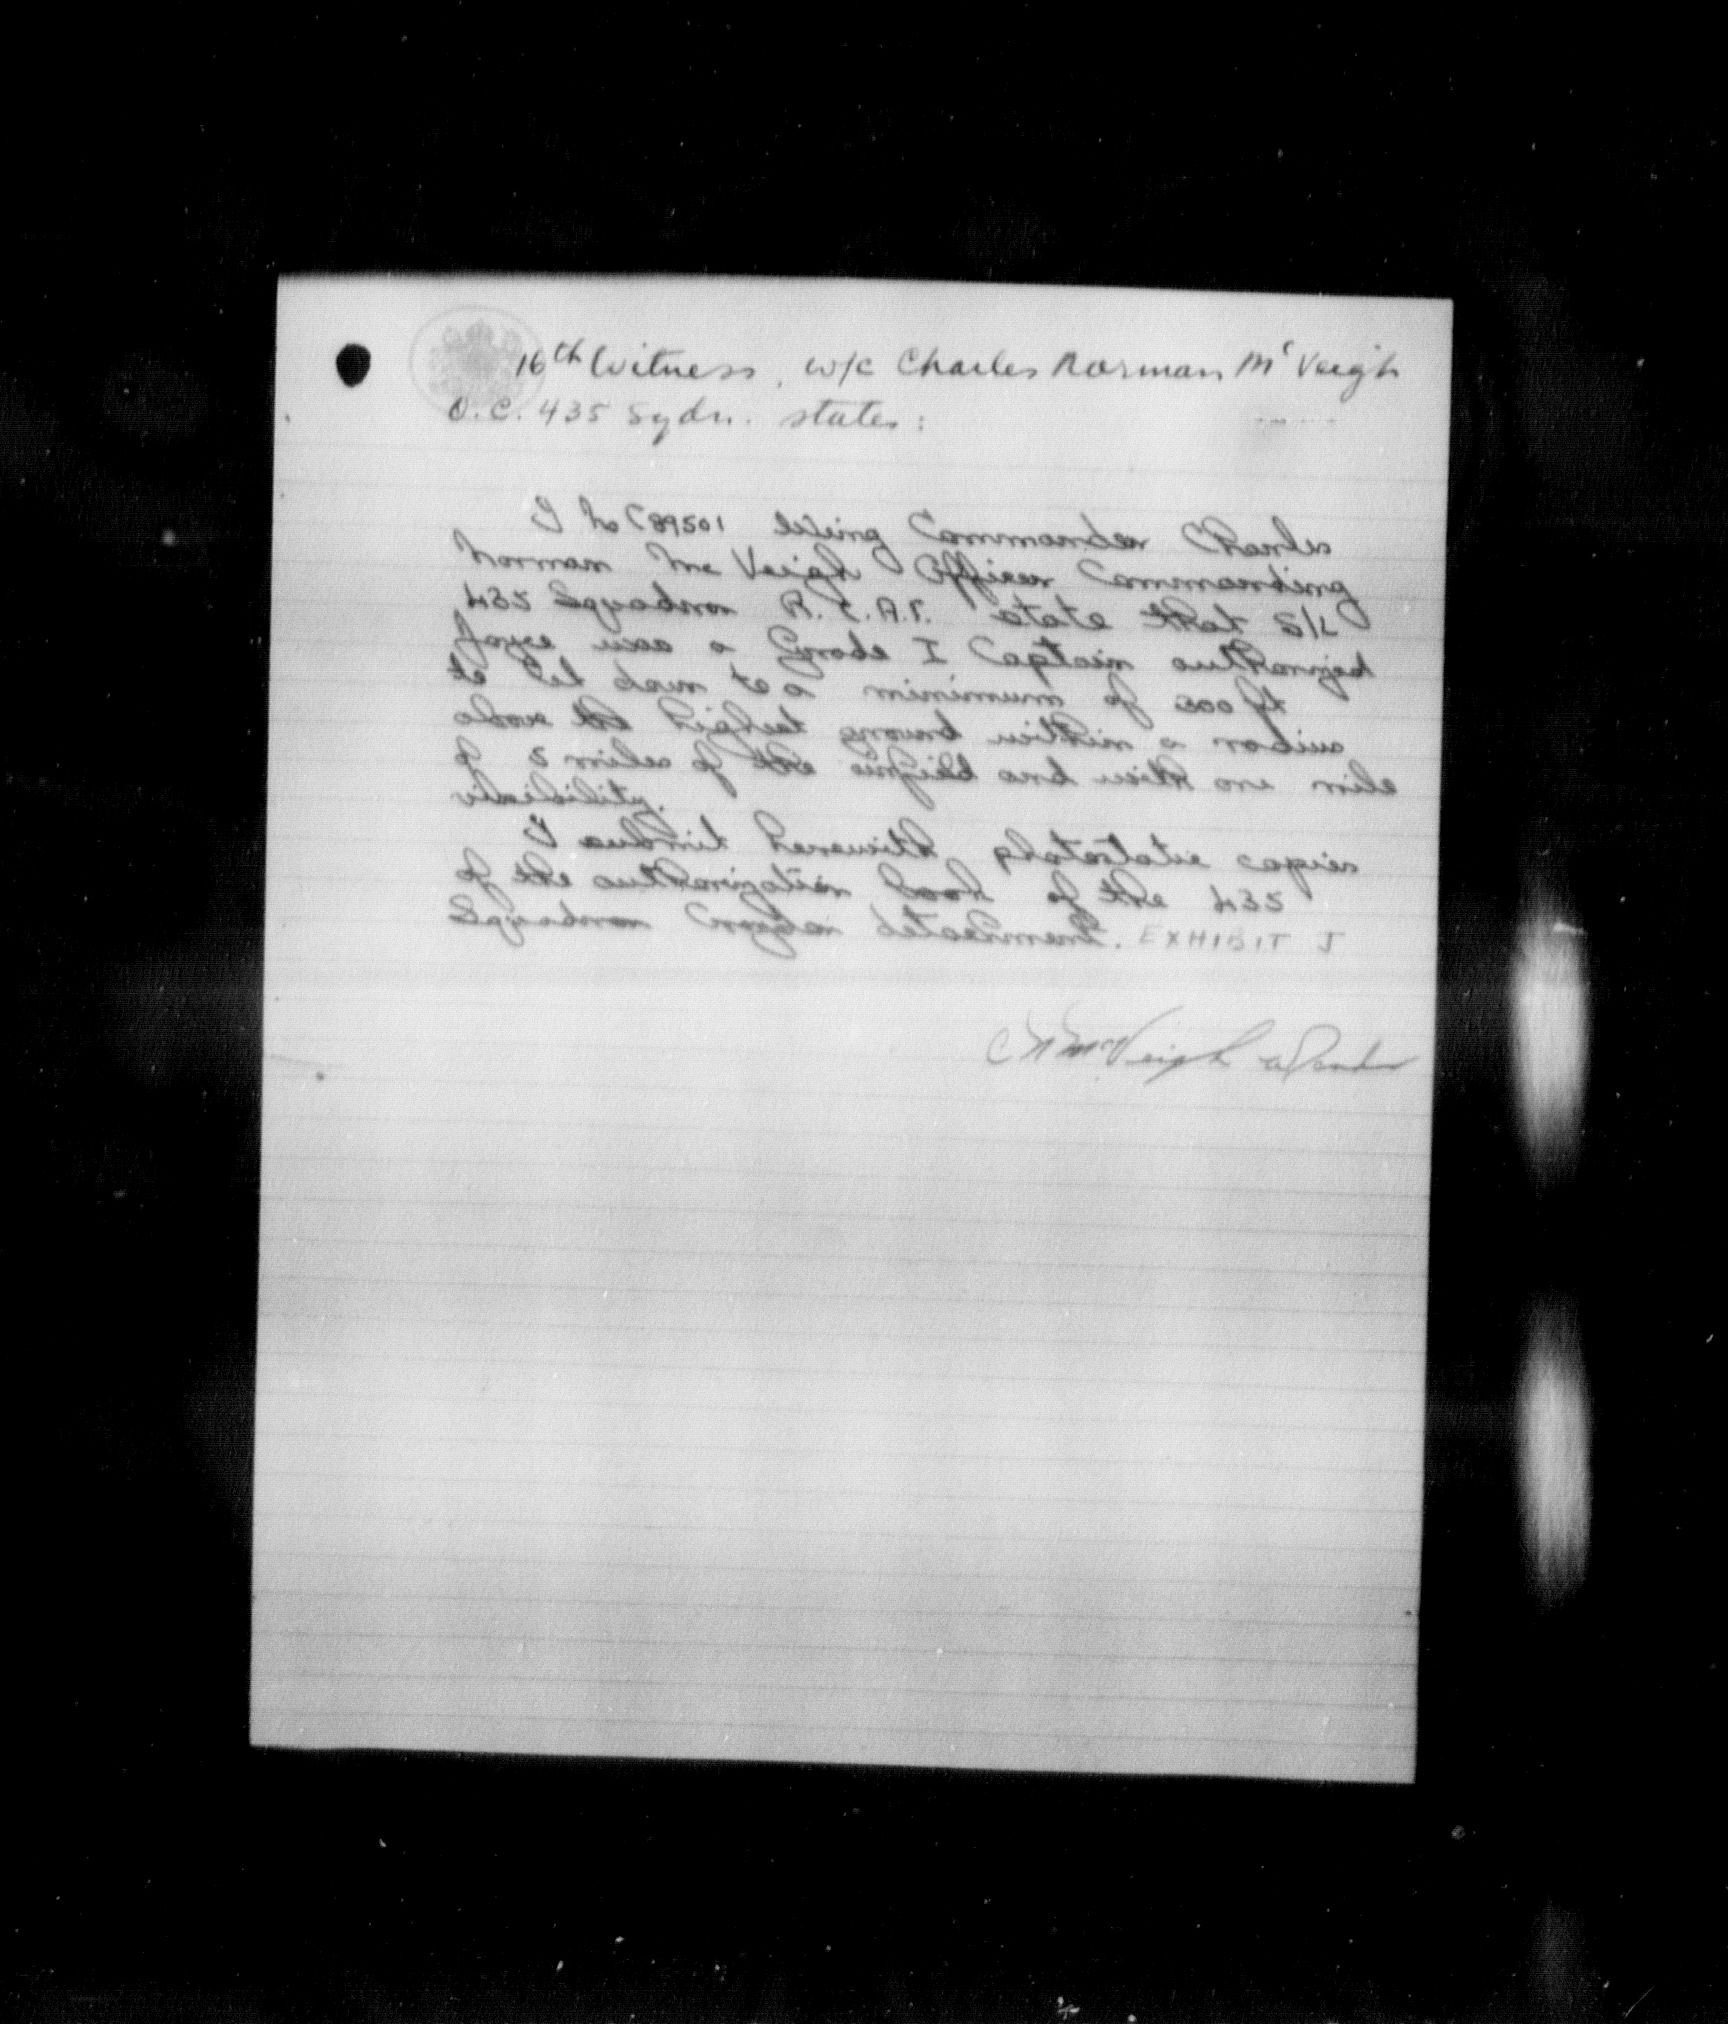 16th Witness, W/C Charles Norman McVeigh
O.C. 435 Sqdn. states:
I C89501 Wing Commander Charles
Norman McVeigh Officer Commanding
435 Squadron R.C.A.F. state that
was a Grade I Captain authorized
to let down to a minimum of 500 ft
above the highest ground within a radius
of 5 miles of the airfield and with one mile
visibility.
I submit herewith photostatic copies
of the authorization book of the 435
Squadron Croydon detachment. EXHIBIT J
CN McVeigh W/Comdr